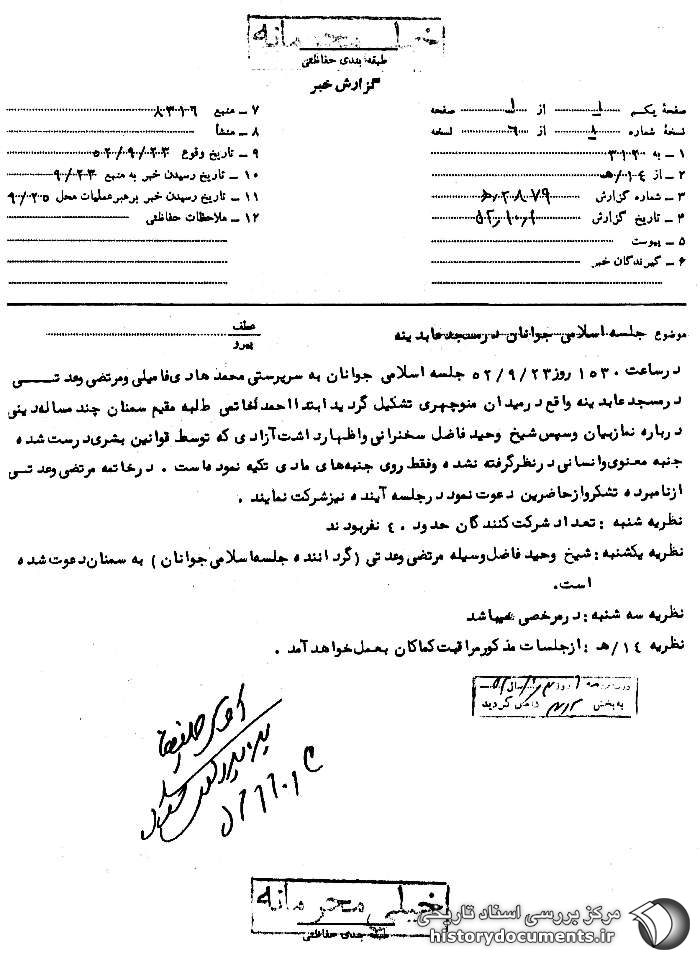 خیلی محرمانه
طبقه بندی حفاظتی
گزارش خبر
صفحهٔ یکم ۱ از ۱ صفحه
نسخهٔ شماره ۸ از ۶ نسخه
۱ ـ به ۳۱۲
۲ ـ از ۱۴/ه‍
۳ ـ شماره گزارش
۴ ـ تاریخ گزارش ۵۲٫۱۰٫۱
۵ ـ پیوست
۶ ـ گیرندگان خبر
۷ ـ منبع ۸۳۱۶
۸ ـ منشأ
۹ ـ تاریخ وقوع ۵۲/۹/۲۳
۱۰ ـ تاریخ رسیدن خبر به منبع ۹/۲۳
۱۱ ـ تاریخ رسیدن خبر برهبر عملیات محل ۹/۲۵
۱۲ ـ ملاحظات حفاظتی
موضوع جلسه اسلامی جوانان درمسجد عابدینه
عطف
پیرو
درساعت ۱۵۳۰ روز ۵۲/۹/۲۳ جلسه اسلامی جوانان به سرپرستی محمد هادی فامیلی ومرتضی وعدتی
درمسجد عابدینه واقع درمیدان منوچهری تشکیل گردید ابتدا احمد لغاتمی طلبه مقیم سمنان چند مساله دینی
درباره نماز بیان وسپس شیخ وحید فاضل سخنرانی واظهارداشت آزادی که توسط قوانین بشری درست شده
جنبه معنوی وانسانی درنظر گرفته نشده وفقط روی جنبه های مادی تکیه نموده است . درخاتمه مرتضی وعدتی
ازنامبرده تشکر وازحاضرین دعوت نمود درجلسه آینده نیز شرکت نمایند .
نظریه شنبه : تعداد شرکت کنندگان حدود ۴۰ نفر بودند
نظریه یکشنبه : شیخ وحید فاضل وسیله مرتضی وعدتی (گرداننده جلسه اسلامی جوانان ) به سمنان دعوت شده
است.
نظریه سه شنبه : درمرخصی میباشد
نظریه ۱۴/ه‍ : ازجلسات مذکور مراقبت کماکان بعمل خواهد آمد .
به بخش ۳۱۲ داخل گردید
خیلی محرمانه
طبقه بندی حفاظتی
مرکز بررسی اسناد تاریخی
historydocuments.ir